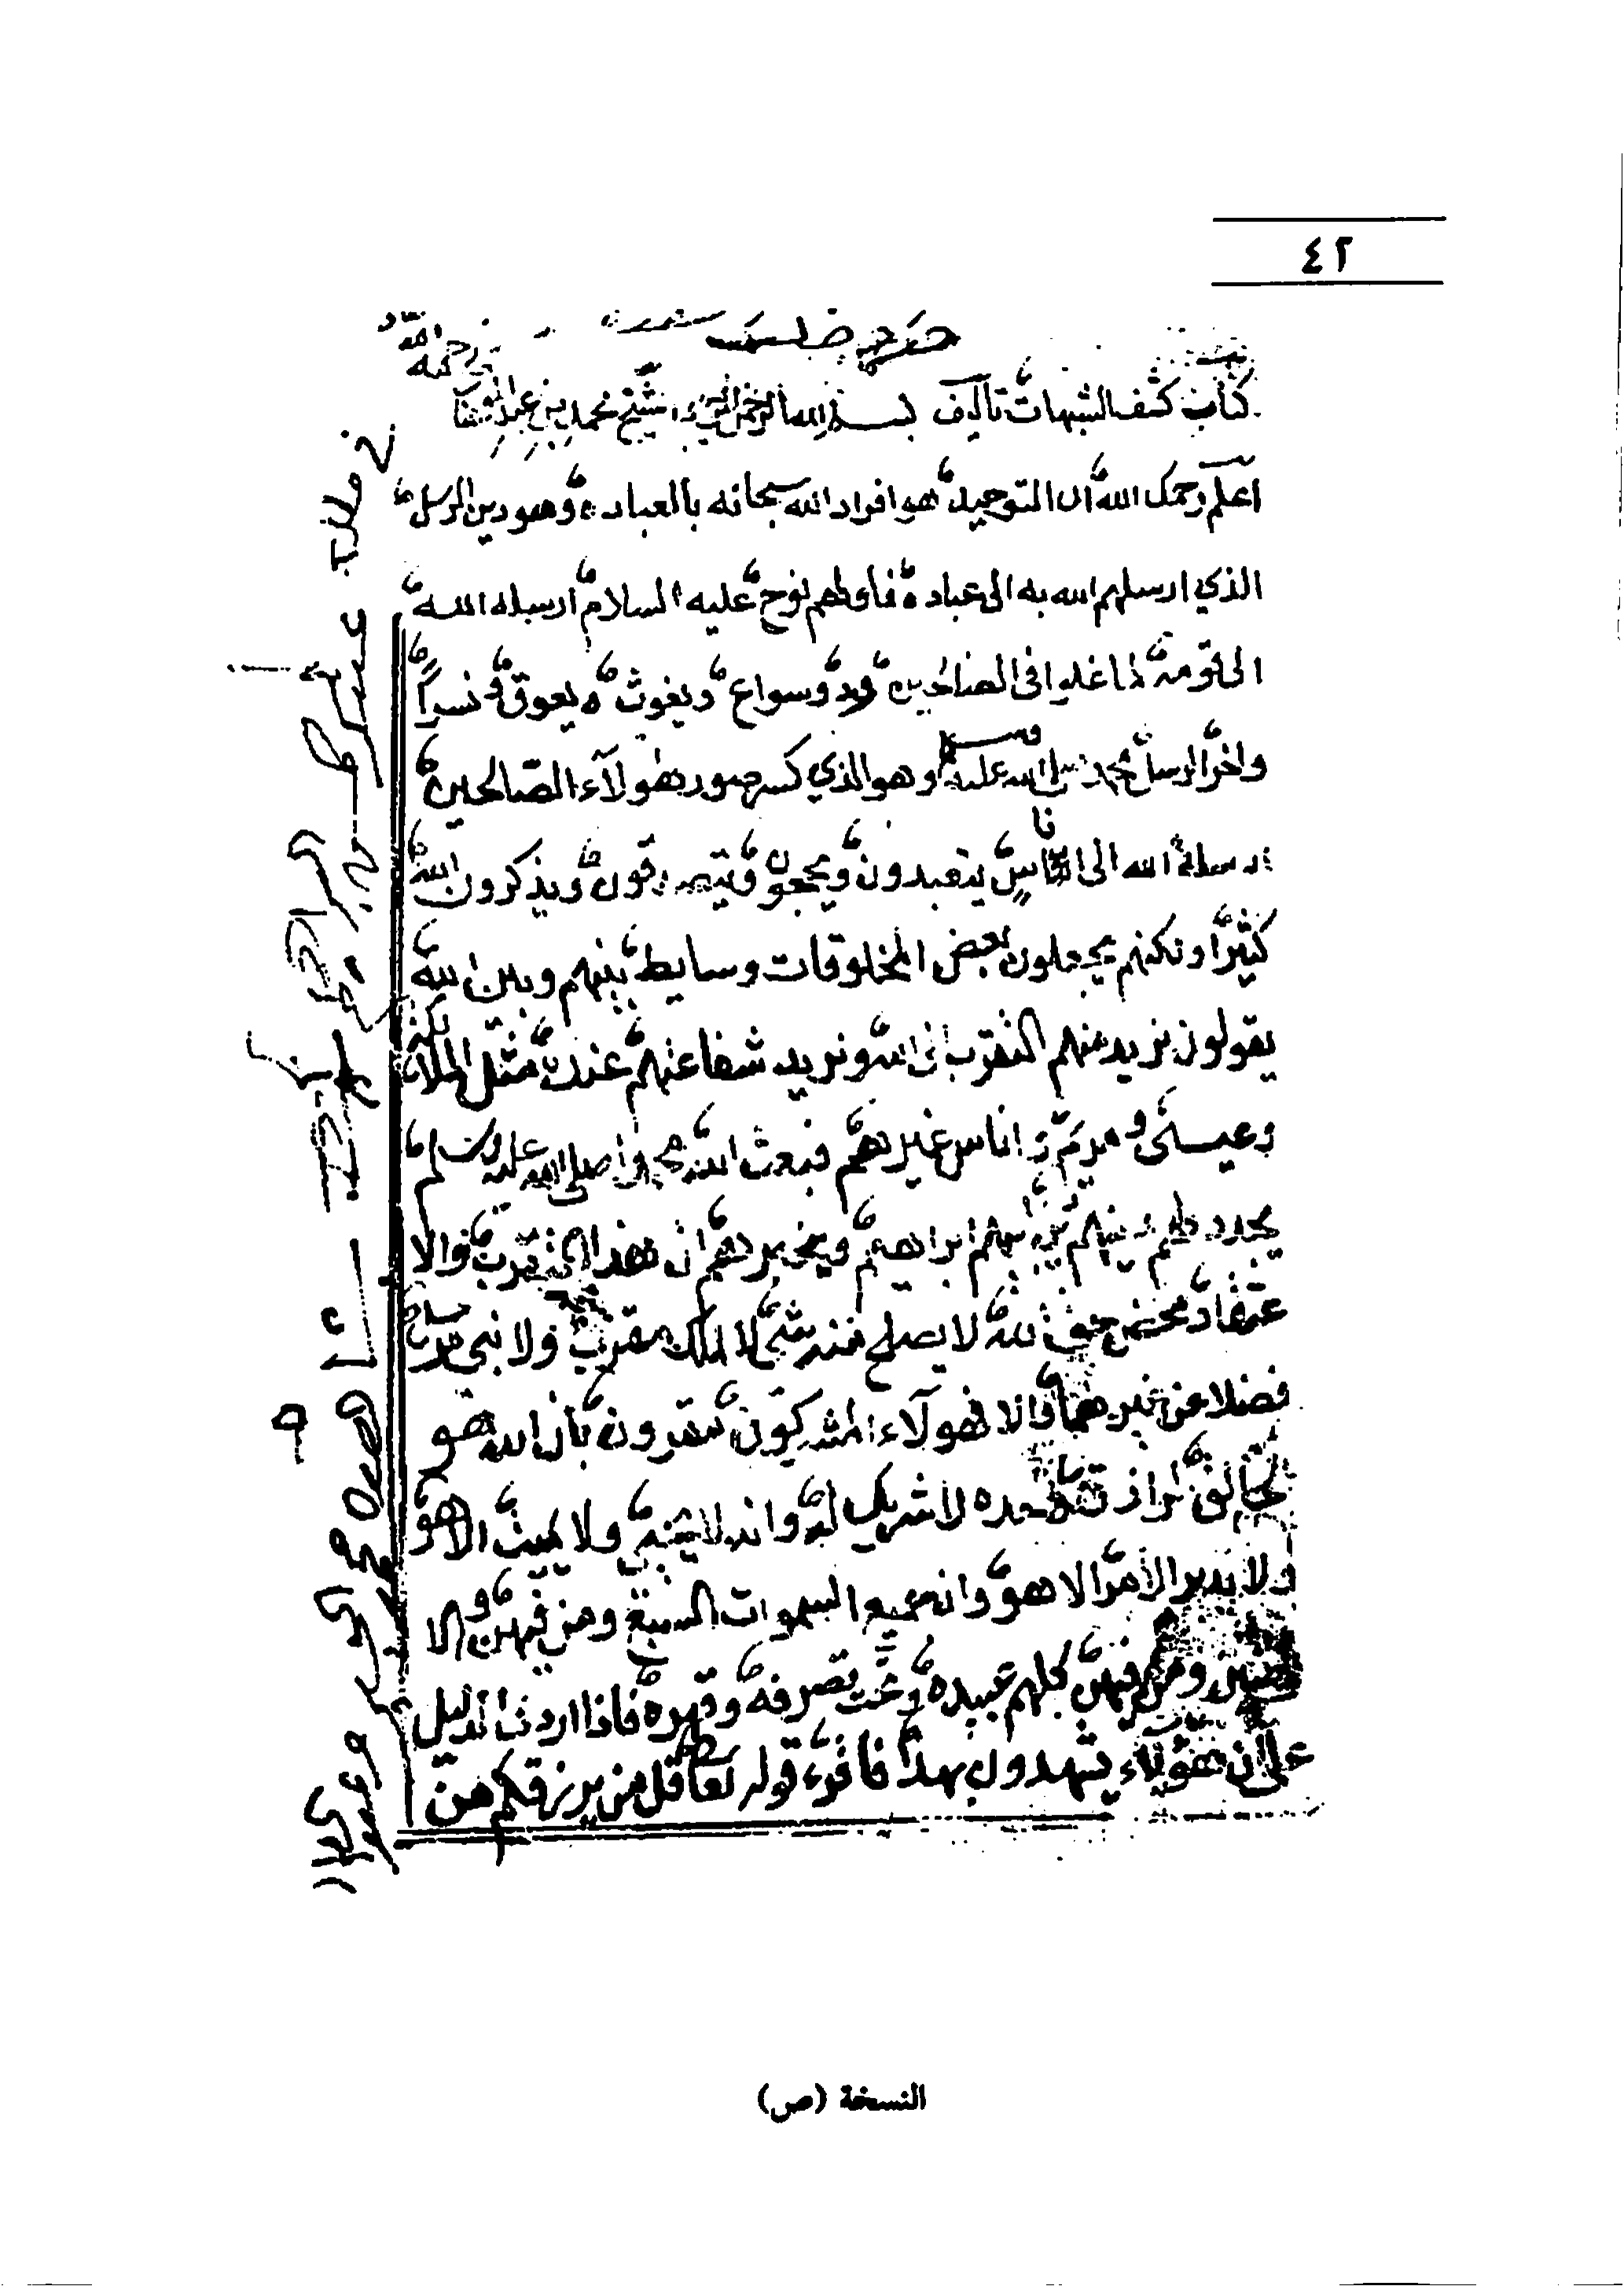 ٤٢
رحمه الله
كتاب كشف الشبهات تأليف بسم الله الرحمن الرحيم الشيخ محمد بن عبد الوهاب
اعلم رحمك الله ان التوحيد هو افراد الله سبحانه بالعباده وهو دين الرسل
الذي ارسلهم الله به الى عباده فاولهم نوح عليه السلام ارسله الله
الى قومه لما غلوا في الصالحين ود وسواع ويغوث ويعوق ونسراً
واخر الرسل محمد صلى الله عليه وسلم وهو الذي كسر صور هٰولآء الصّالحين
ارسله الله الى اناسٍ يتعبدون ويحجون ويتصدقون ويذكرون الله
كثيراً ولكنهم يجعلون بعض المخلوقات وسايط بينهم وبين الله
يقولون نريد منهم التقرب الى الله ونريد شفاعتهم عنده مثل الملائكة
وعيسى ومريم واناس غيرهم فبعث الله محمدا صلى الله عليه وسلم
يجدد لهم دينهم دين ابيهم ابراهيم ويخبرهم ان هذا التقرب والا
عتقاد محض حق لله لا يصلح منه شئ لا لملك مقرب ولا نبي مرسل
فضلا عن غيرهما والا فهولآء المشركون مقرون بان الله هو
الخالق الرازق وحده لا شريك له وانه لا يحيي ولا يميت الا هو
ولا يدبر الامر الا هو وان جميع السموات السبع ومن فيهن والا
رضين ومن فيهن كلهم عبيده وتحت تصرفه وقهره فاذا اردت الدليل
على ان هؤلاء يشهدون بهذا فاقرء قوله تعالى قل من يرزقكم من
النسخة (ص)